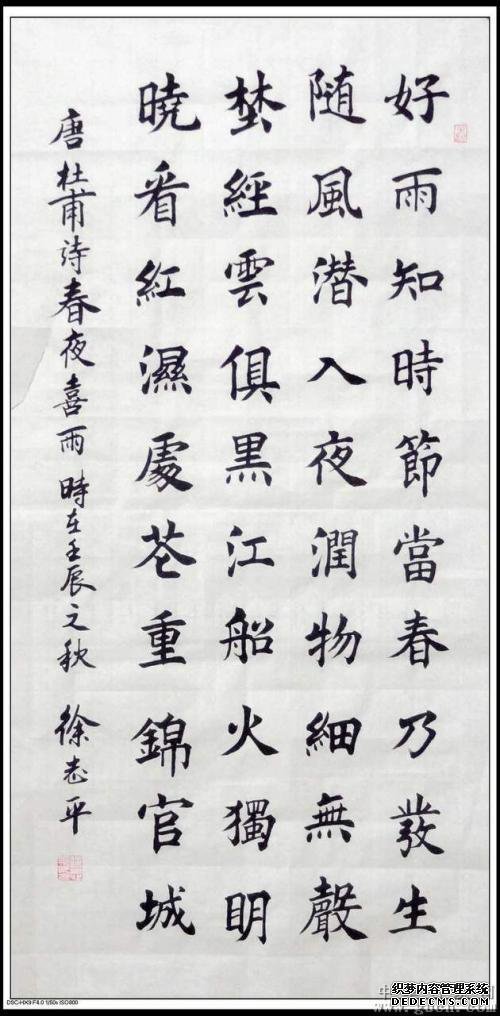 好雨知時節當春乃發生
随風潜入夜潤物細無聲
埜經雲俱黒江船火獨明
曉看紅濕處花重錦官城
唐杜甫诗春夜喜雨時在壬辰之秋 徐志平
DSC-HX9 F4.0 1/50s ISO800
织梦内容管理系统
DEDECMS.COM